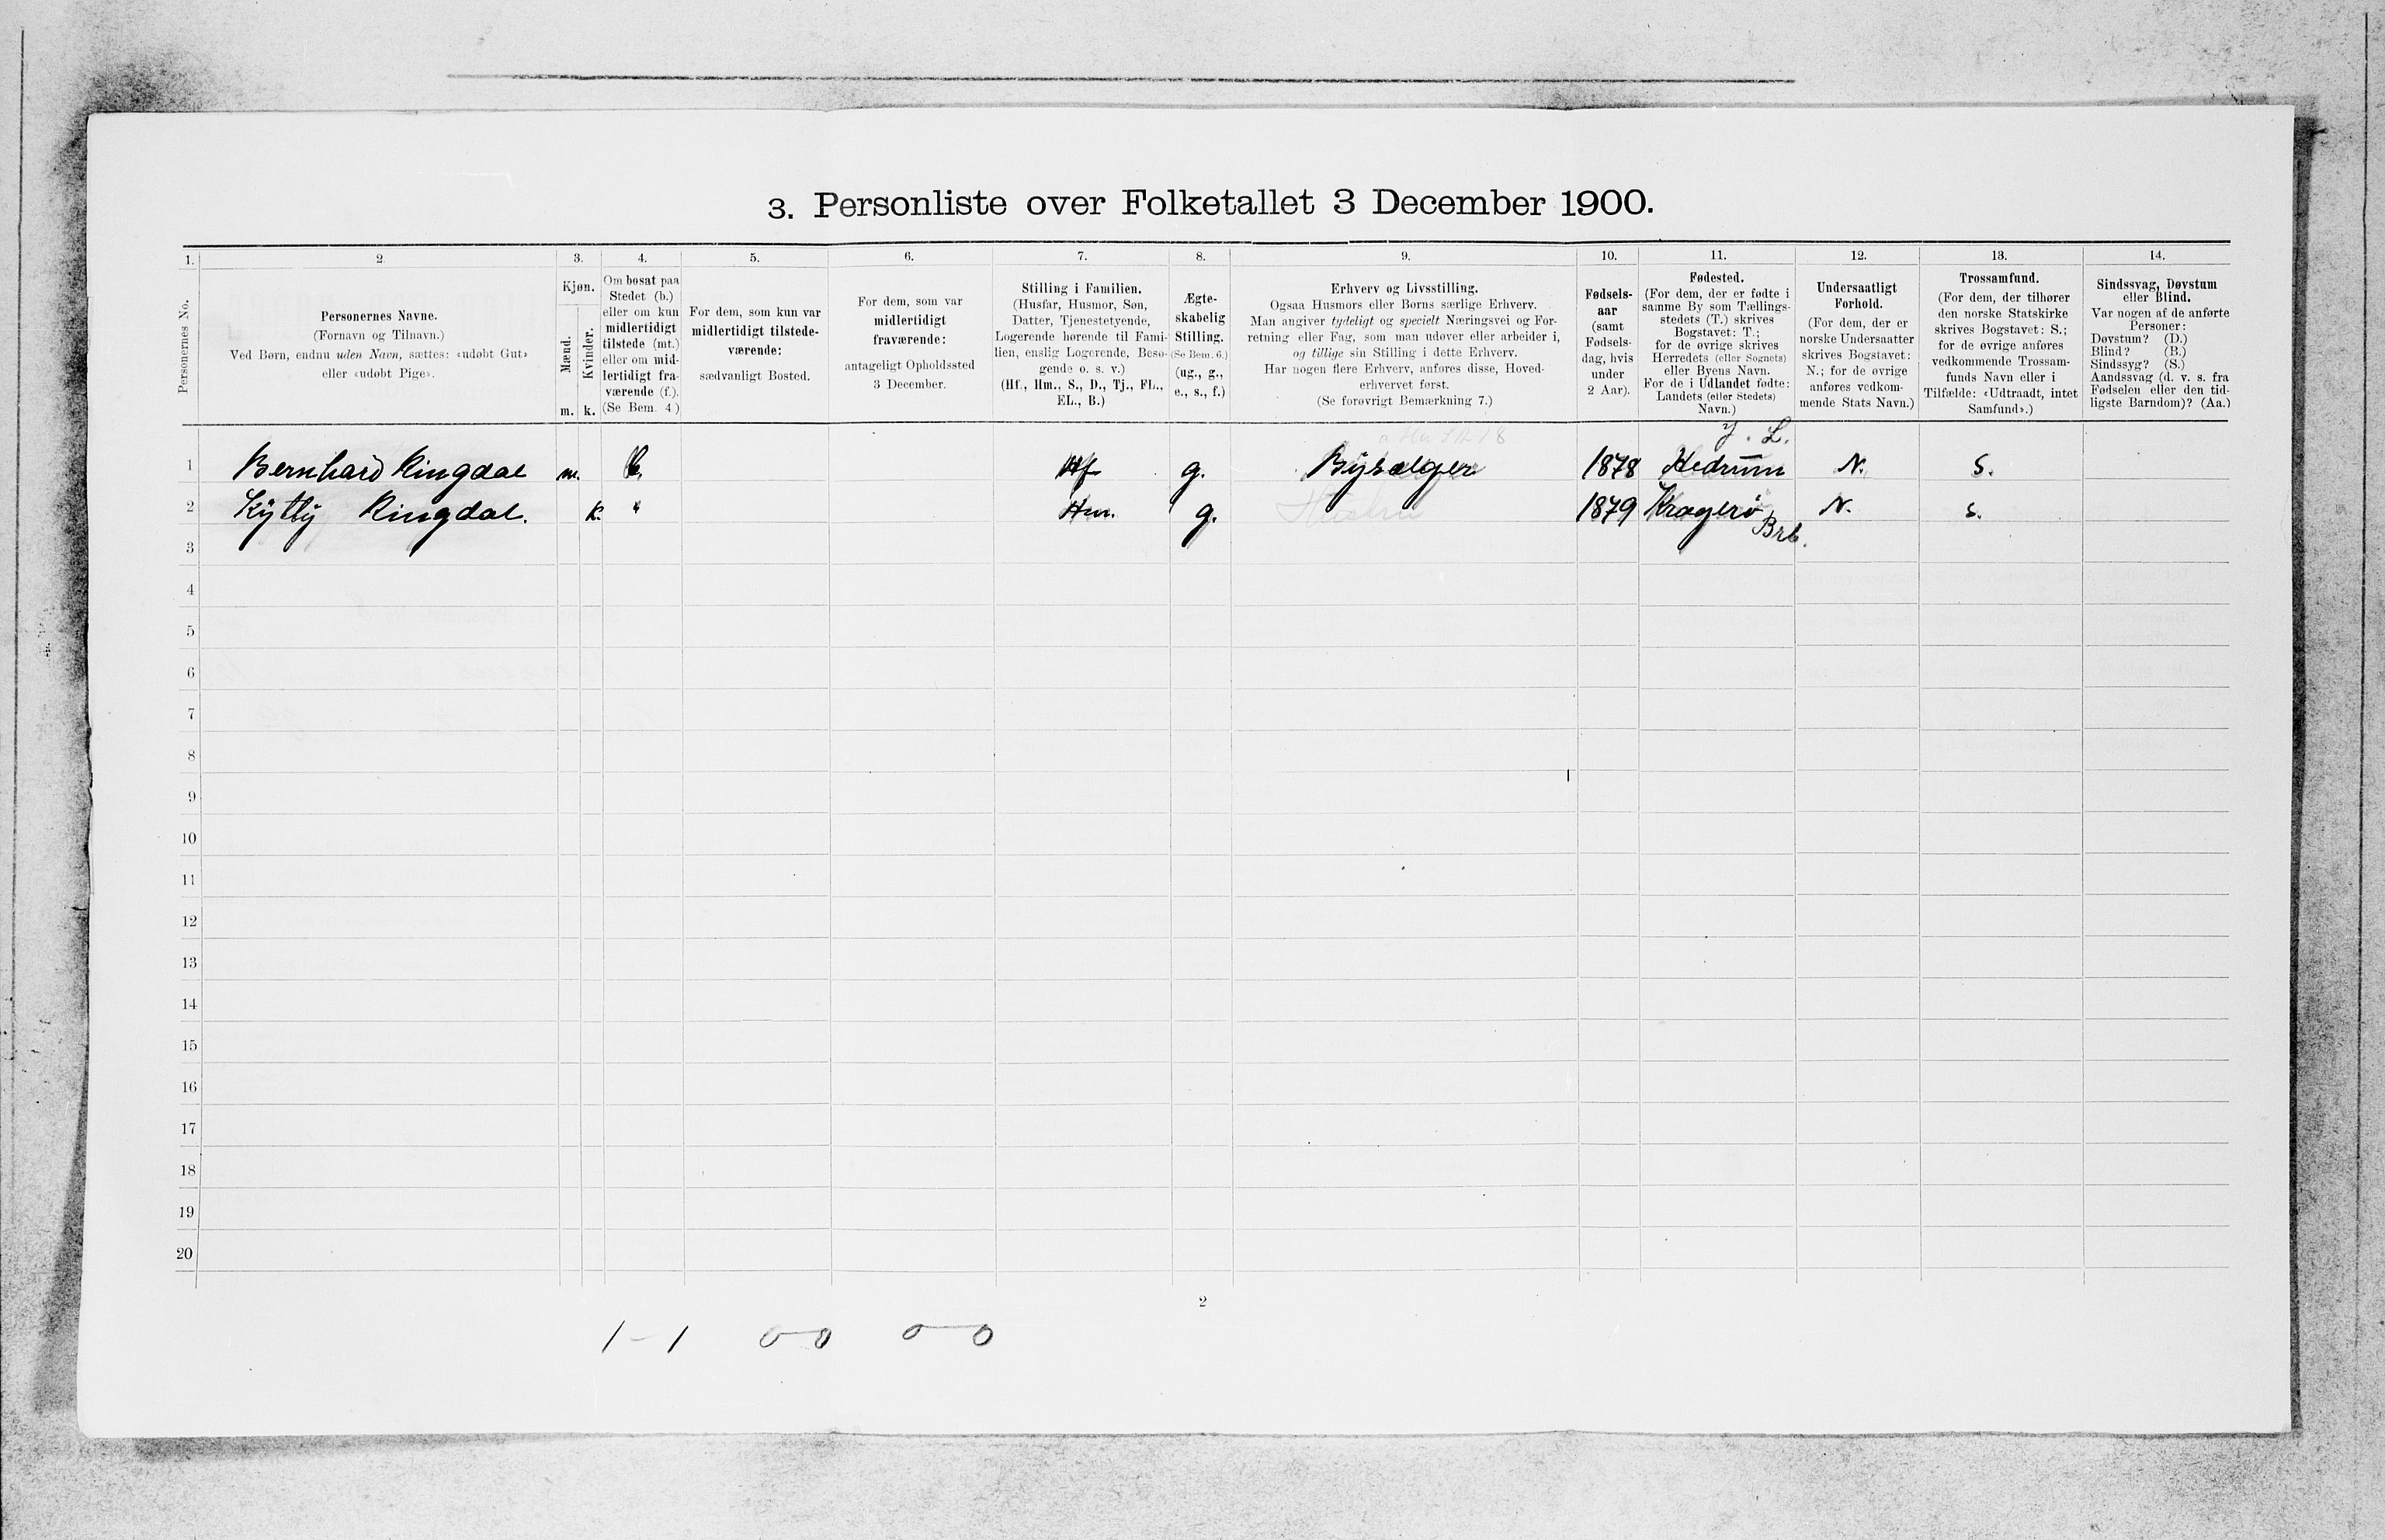 3. Personliste over Folketallet 3 December 1900.
1. 2. 3. 4. 5. 6. 7. 8. 9. 10. 11. 12. 13. 14.
Personernes No.
Personernes Navne.
(Fornavn og Tilnavn.)
Ved Børn, endnu uden Navn, sættes: «udøbt Gut»
eller «udøbt Pige».
Kjøn.
Mænd.
Kvinder.
m. k.
Om bosat paa
Stedet (b.)
eller om kun
midlertidigt
tilstede (mt.)
eller om mid-
lertidigt fra-
værende (f.).
(Se Bem. 4.)
For dem, som kun var
midlertidigt tilstede-
værende:
sædvanligt Bosted.
For dem, som var
midlertidigt
fraværende:
antageligt Opholdssted
3 December.
Stilling i Familien.
(Husfar, Husmor, Søn,
Datter, Tjenestetyende,
Logerende hørende til Fami-
lien, enslig Logerende, Besø-
gende o. s. v.)
(Hf., Hm., S., D., Tj., FL.,
EL., B.)
Ægte-
skabelig
Stilling.
(Se Bem. 6.)
(ug., g.,
e., s., f.)
Erhverv og Livsstilling.
Ogsaa Husmors eller Børns særlige Erhverv.
Man angiver tydeligt og specielt Næringsvei og For-
retning eller Fag, som man udøver eller arbeider i,
og tillige sin Stilling i dette Erhverv.
Har nogen flere Erhverv, anføres disse, Hoved-
erhvervet først.
(Se forøvrigt Bemærkning 7.)
Fødsels-
aar
(samt
Fødsels-
dag, hvis
under
2 Aar).
Fødested.
(For dem, der er fødte i
samme By som Tællings-
stedets (T.) skrives
Bogstavet: T.;
for de øvrige skrives
Herredets (eller Sognets)
eller Byens Navn.
For de i Udlandet fødte:
Landets (eller Stedets)
Navn.)
Undersaatligt
Forhold.
(For dem, der er
norske Undersaatter
skrives Bogstavet:
N.; for de øvrige
anføres vedkom-
mende Stats Navn.)
Trossamfund.
(For dem, der tilhører
den norske Statskirke
skrives Bogstavet: S.;
for de øvrige anføres
vedkommende Trossam-
funds Navn eller i
Tilfælde: «Udtraadt, intet
Samfund».)
Sindssvag, Døvstum
eller Blind.
Var nogen af de anførte
Personer:
Døvstum? (D.)
Blind? (B.)
Sindssyg? (S.)
Aandssvag (d. v. s. fra
Fødselen eller den tid-
ligste Barndom)? (Aa.)
J. L.
1 Bernhard Ringdal m. b. Hf g. Bysælger 1878 Hedrum N. S.
2 Kytty Ringdal. k. " Hm. g. 1879 Kragerø N. S.
Brb.
3
4
5
6
7
8
9
10
11
12
13
14
15
16
17
18
19
20
2
1-1 0-0 0-0